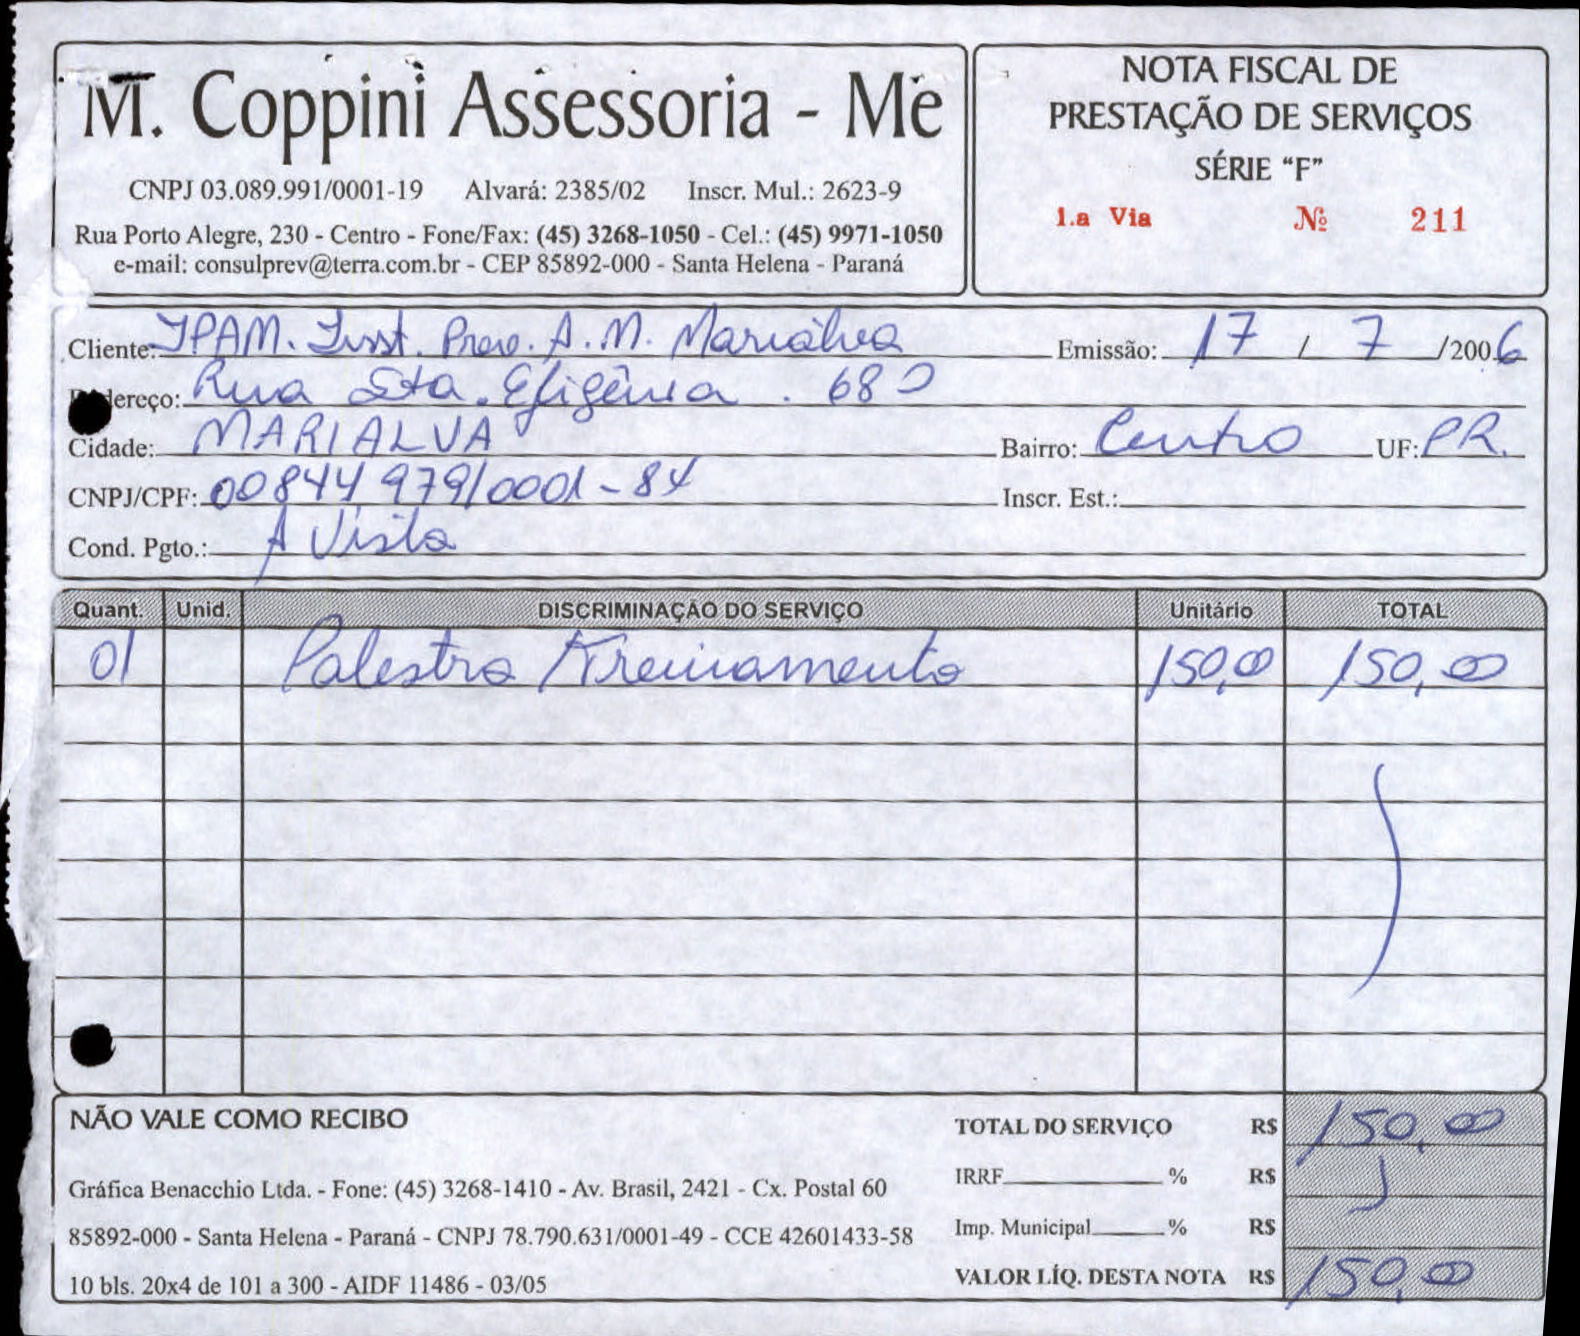 M. Coppini Assessoria - Me
CNPJ 03.089.991/0001-19 Alvará: 2385/02 Inscr. Mul.: 2623-9
Rua Porto Alegre, 230 - Centro - Fone/Fax: (45) 3268-1050 - Cel.: (45) 9971-1050
e-mail: consulprev@terra.com.br - CEP 85892-000 - Santa Helena - Paraná
NOTA FISCAL DE
PRESTAÇÃO DE SERVIÇOS
SÉRIE “F”
1.a Via Nº 211
Cliente: IPAM. Inst. Prev. A. M. Marialva Emissão: 17 / 7 /2006
dereço: Rua Sta. Efigênia . 680
Cidade: MARIALVA Bairro: Centro UF: PR.
CNPJ/CPF: 00844 979/0001-84 Inscr. Est.:
Cond. Pgto.: A Vista
Quant. Unid. DISCRIMINAÇÃO DO SERVIÇO Unitário TOTAL
01 Palestra Treinamento 150,00 150,00
NÃO VALE COMO RECIBO
Gráfica Benacchio Ltda. - Fone: (45) 3268-1410 - Av. Brasil, 2421 - Cx. Postal 60
85892-000 - Santa Helena - Paraná - CNPJ 78.790.631/0001-49 - CCE 42601433-58
10 bls. 20x4 de 101 a 300 - AIDF 11486 - 03/05
TOTAL DO SERVIÇO R$ 150,00
IRRF % R$
Imp. Municipal % R$
VALOR LÍQ. DESTA NOTA R$ 150,00